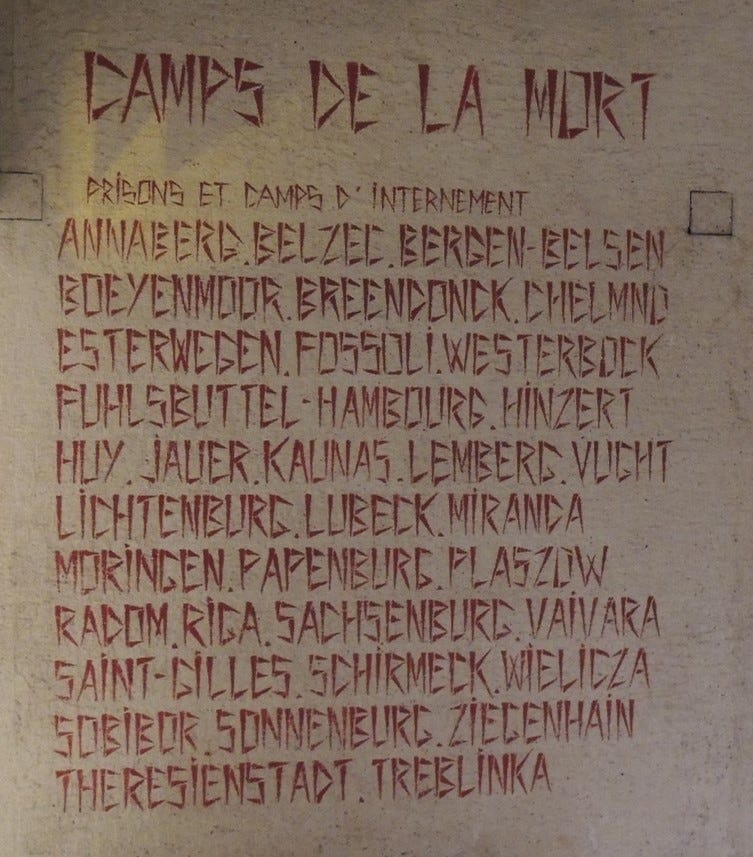 CAMPS DE LA MORT
PRiSONS ET CAMPS D'iNTERNEMENT
ANNABERG.BELZEC.BERGEN-BELSEN
BOEYENMOOR.BREENDONCK.CHELMNO
ESTERWEGEN.FOSSOLi.WESTERBOCK
FUHLSBUTTEL-HAMBOURG.HiNZERT
HUY.JAUER.KAUNAS.LEMBERG.VUGHT
LiCHTENBURG.LUBECK.MiRANDA
MORiNGEN.PAPENBURG.PLASZOW
RADOM.RiGA.SACHSENBURG.VAiVARA
SAiNT-GiLLES.SCHiRMECK.WiELiCZA
SOBiBOR.SONNENBURG.ZiEGENHAiN
THERESiENSTADT.TREBLiNKA